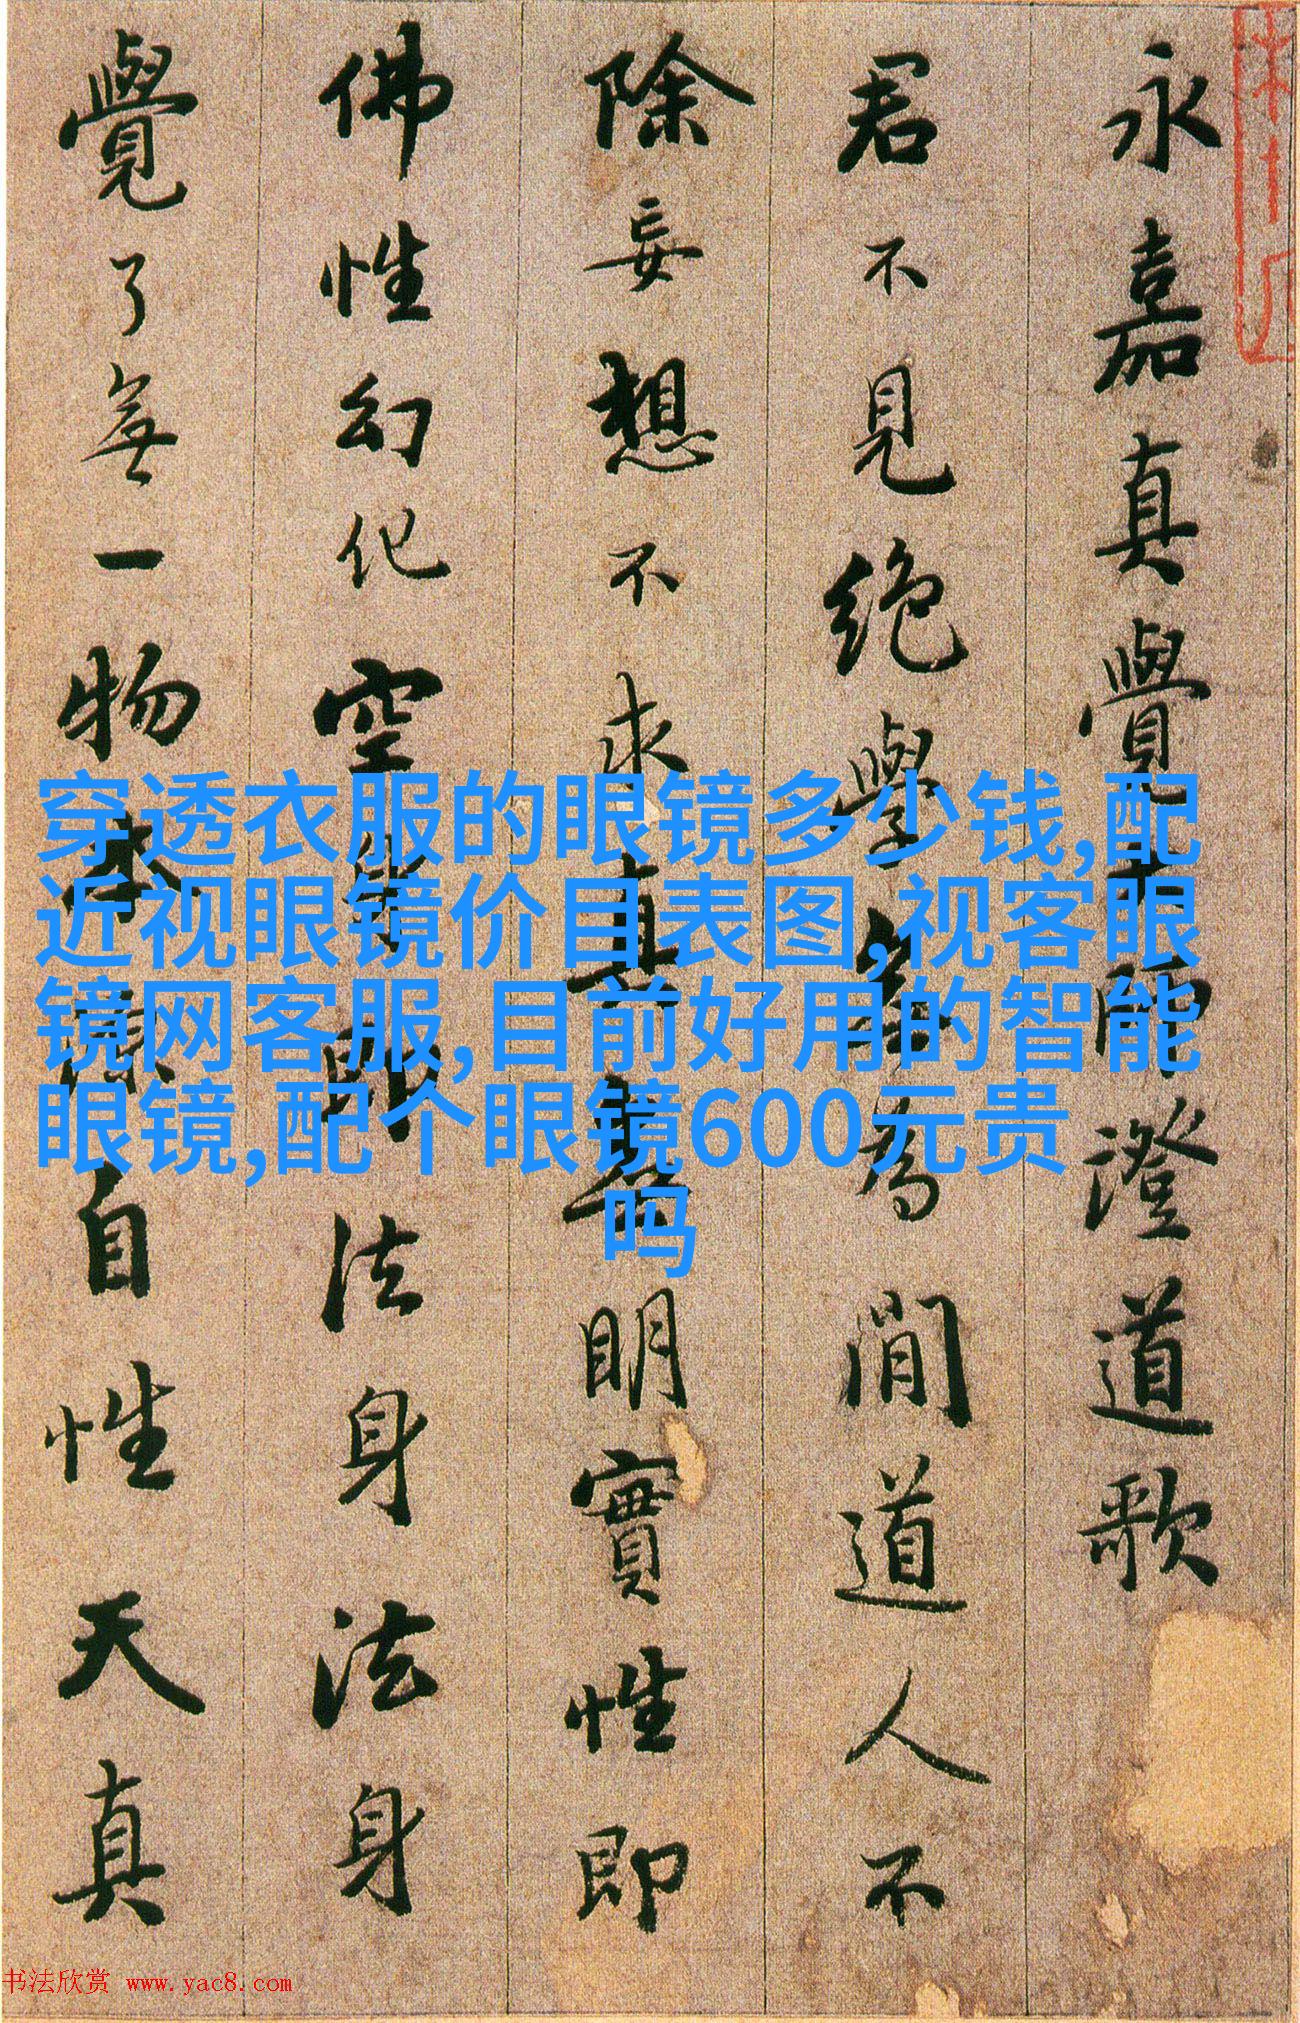 永嘉真覺大師澄道歌
君不見絶學無為閒道人不
除妄想不求真無明實性即
佛性幻化空身即法身法身
覺了無一物本源自性天真
穿透衣服的眼镜多少钱,配
近视眼镜价目表图,视客眼
镜网客服,目前好用的智能
眼镜,配个眼镜600元贵
吗
书法欣赏 www.yac8.com